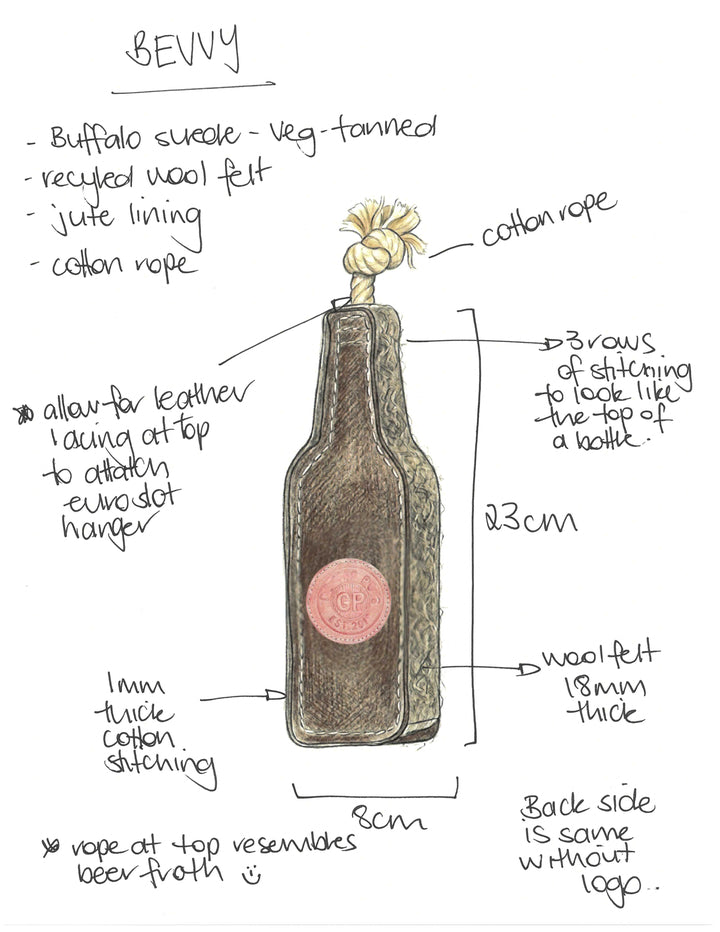 BEVVY
- Buffalo suede - veg-tanned
- recyled wool felt
- jute lining
- cotton rope
cotton rope
3 rows
of stitching
to look like
the top of
a bottle.
* allow for leather
lacing at top
to attatch
euroslot
hanger
23cm
GP
wool felt
18mm
thick
1mm
thick
cotton
stitching
8cm
Back side
is same
without
logo..
* rope at top resembles
beer froth